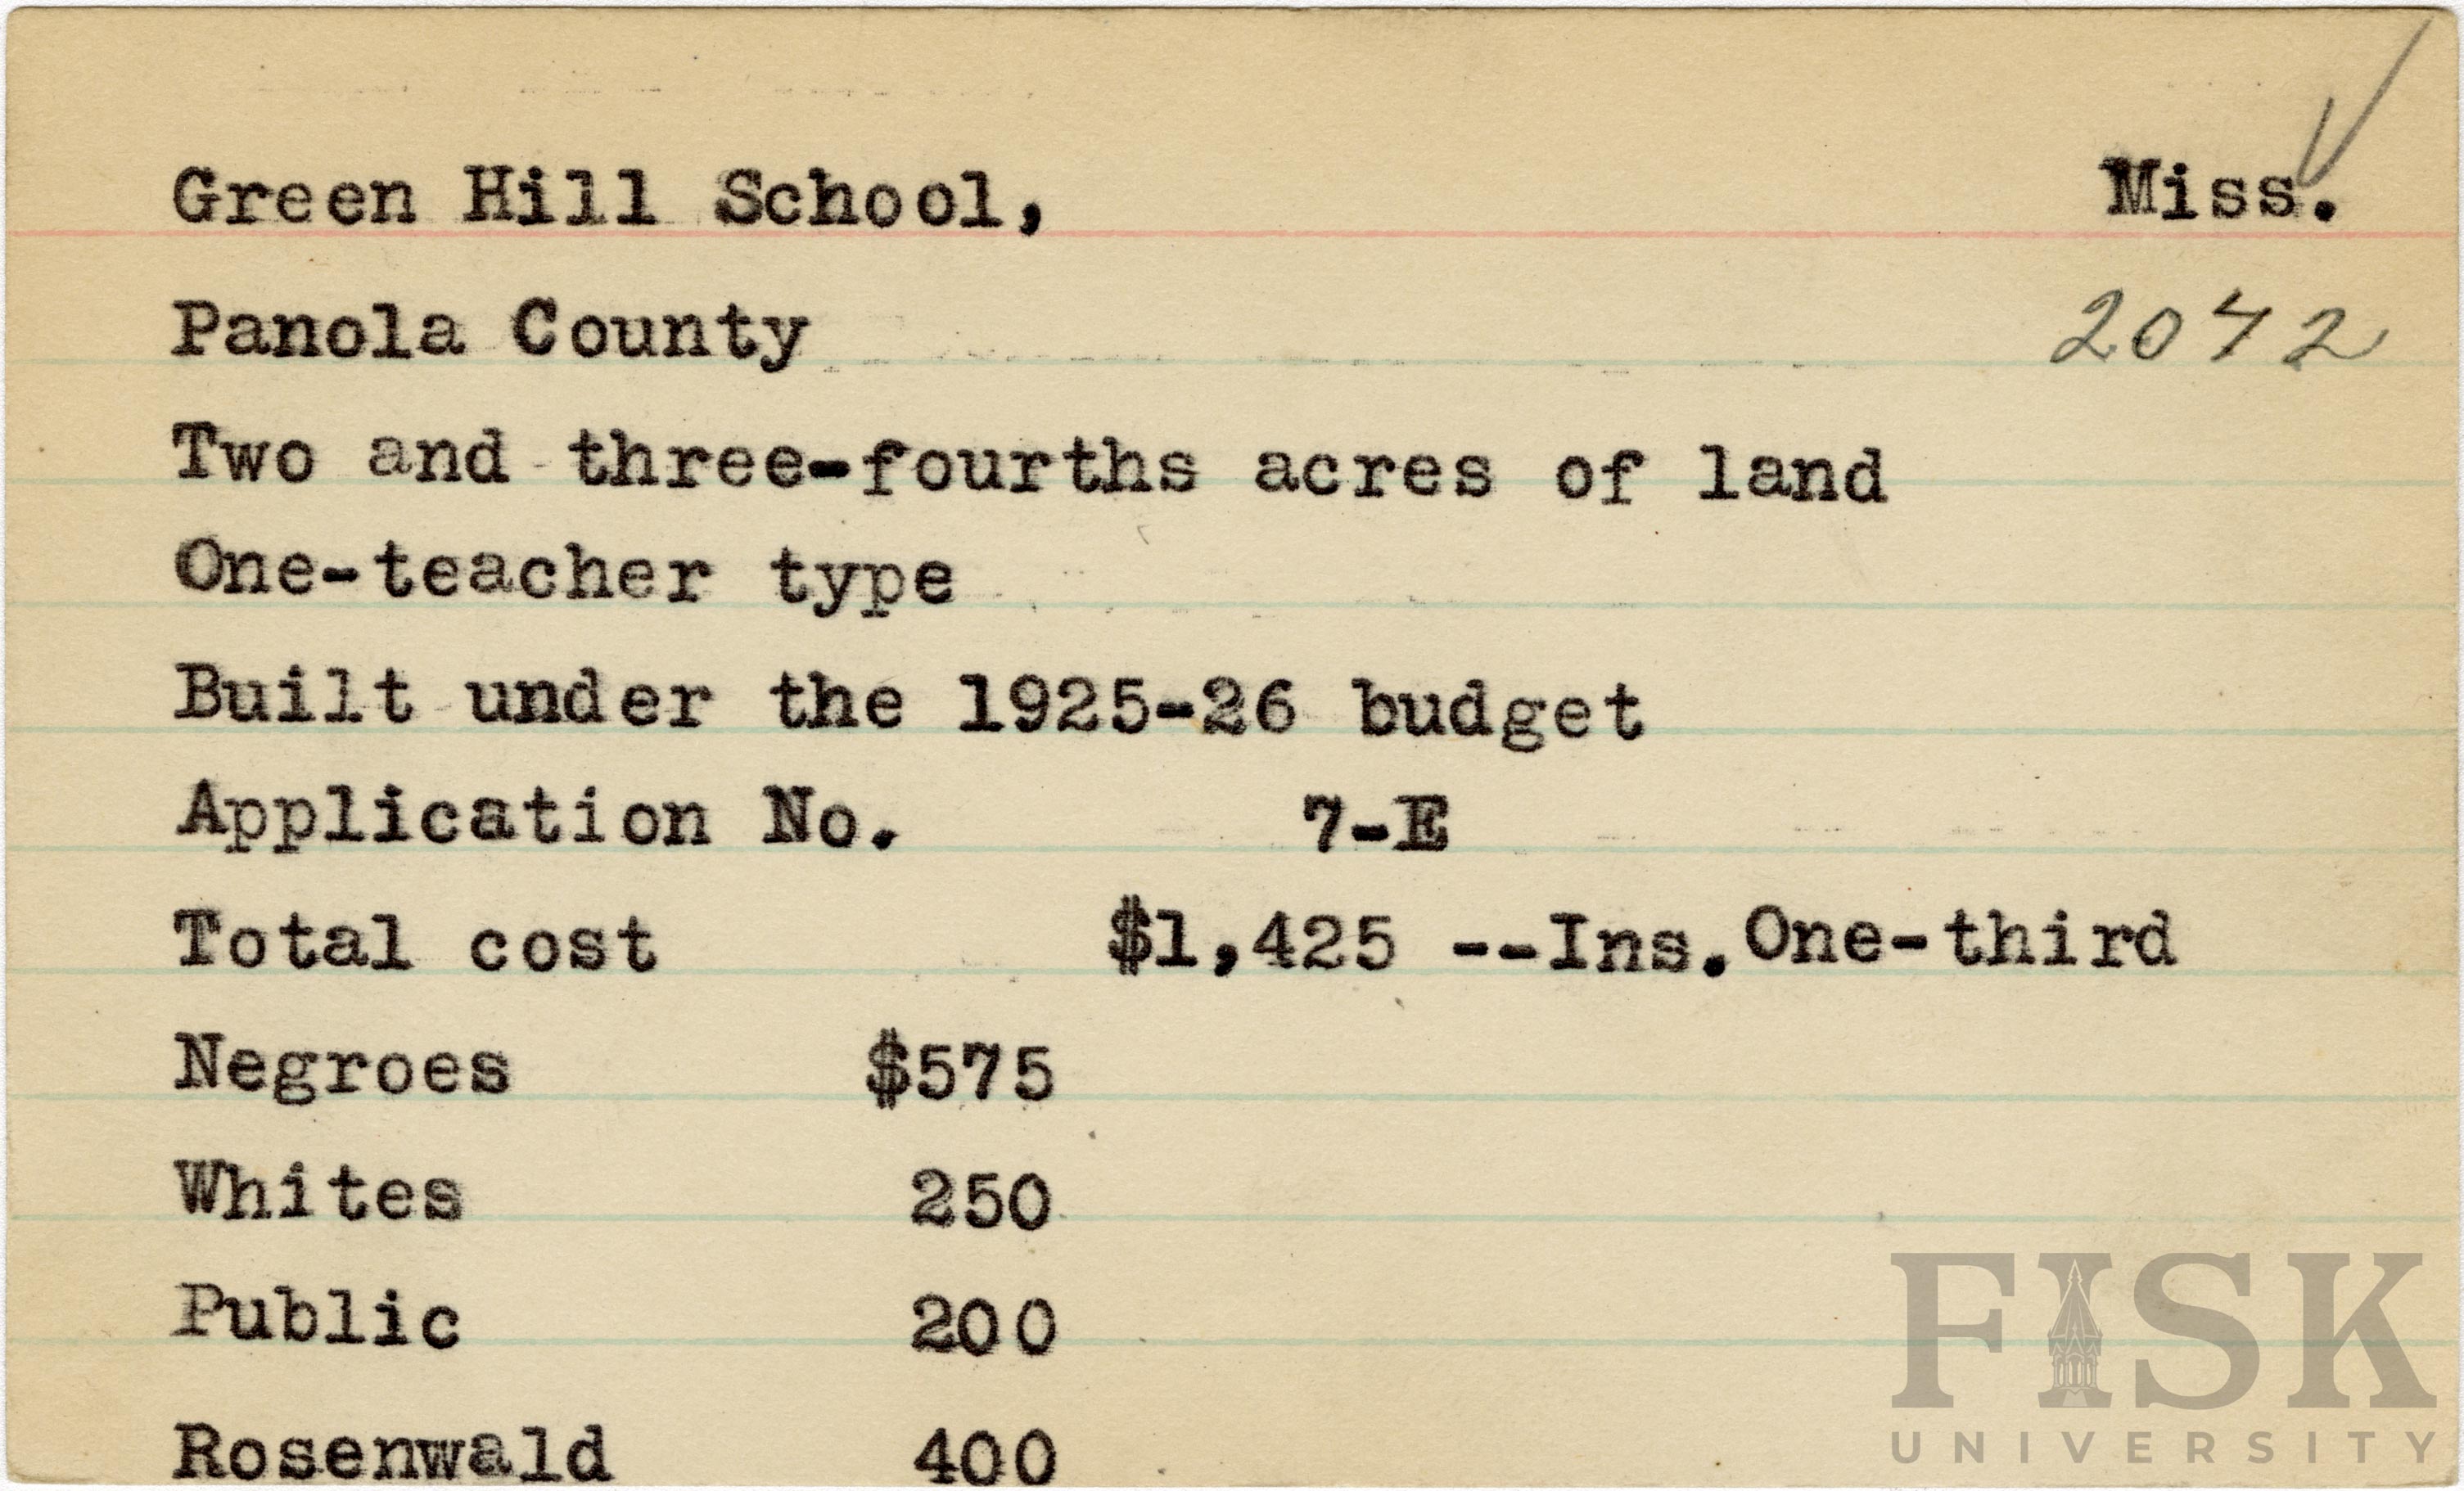 Green Hill School, Miss.
Panola County 2042
Two and three-fourths acres of land
One-teacher type
Built under the 1925-26 budget
Application No. 7-E
Total cost $1,425 --Ins. One-third
Negroes $575
Whites 250
Public 200
Rosenwald 400
FISK
UNIVERSITY